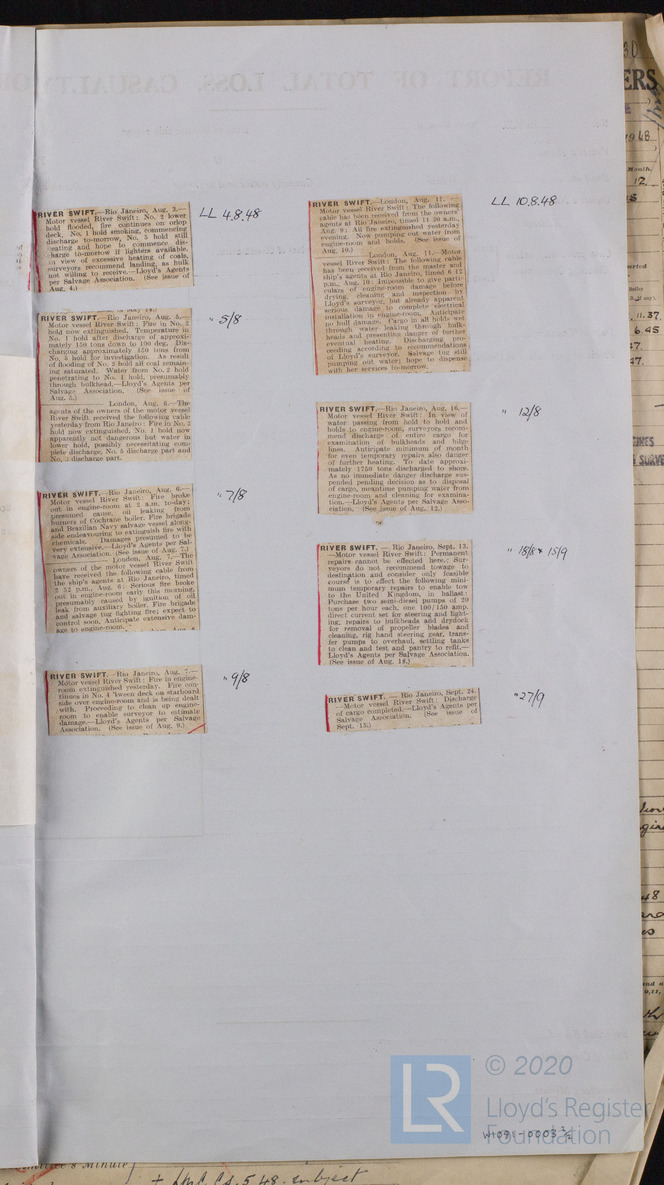 RIVER SWIFT.—Rio Janeiro, Aug. 3.—
Motor vessel River Swift: No. 2 lower
hold flooded, fire continues on orlop
deck, No. 1 hold smoking, commencing
discharge to-morrow, No. 5 hold still
heating and hope to commence dis-
charge to-morrow if lighters available,
in view of excessive heating of coals,
surveyors recommend landing, as hulk
not willing to receive.—Lloyd's Agents
per Salvage Association. (See issue of
Aug. 4.)
LL 4.8.48
RIVER SWIFT.—Rio Janeiro, Aug. 5.—
Motor vessel River Swift: Fire in No. 2
hold now extinguished. Temperature in
No. 1 hold after discharge of approxi-
mately 150 tons down to 100 deg. Dis-
charging approximately 150 tons from
No. 5 hold for investigation. As result
of flooding of No. 2 hold all coal remain-
ing saturated. Water from No. 2 hold
penetrating to No. 1 hold, presumably
through bulkhead.—Lloyd's Agents per
Salvage Association. (See issue of
Aug. 5.)
London, Aug. 6.—The
agents of the owners of the motor vessel
River Swift received the following cable
yesterday from Rio Janeiro: Fire in No. 2
hold now extinguished, No. 1 hold now
apparently not dangerous but water in
lower hold, possibly necessitating com-
plete discharge, No. 5 discharge part and
No. discharge part.
" 5/8
RIVER SWIFT.—Rio Janeiro, Aug. 6.—
Motor vessel River Swift: Fire broke
out in engine-room at 2 a.m. to-day;
presumed cause, oil leaking from
burners of Cochrane boiler. Fire brigade
and Brazilian Navy salvage vessel along-
side endeavouring to extinguish fire with
chemicals. Damages presumed to be
very extensive.—Lloyd's Agents per Sal-
vage Association. (See issue of Aug. 7.)
London, Aug. 7.—The
owners of the motor vessel River Swift
have received the following cable from
the ship's agents at Rio Janeiro, timed
2 52 p.m., Aug. 6: Serious fire broke
out in engine-room early this morning,
presumably caused by ignition of oil
leak from auxiliary boiler. Fire brigade
and salvage tug fighting fire; expect to
control soon. Anticipate extensive dam-
age to engine-room.
" 7/8
RIVER SWIFT.—Rio Janeiro, Aug. 7.—
Motor vessel River Swift: Fire in engine-
room extinguished yesterday. Fire con-
tinues in No. 4 'tween deck on starboard
side over engine-room and is being dealt
with. Proceeding to clean up engine-
room to enable surveyor to estimate
damage.—Lloyd's Agents per Salvage
Association. (See issue of Aug. 9.)
" 9/8
RIVER SWIFT.—London, Aug. 11.—
Motor vessel River Swift: The following
cable has been received from the owners'
agents at Rio Janeiro, timed 11 20 a.m.,
Aug. 9: All fire extinguished yesterday
evening. Now pumping out water from
engine-room and holds. (See issue of
Aug. 10.)
London, Aug. 11.—Motor
vessel River Swift: The following cable
has been received from the master and
ship's agents at Rio Janeiro, timed 6 12
p.m., Aug. 10: Impossible to give parti-
culars of engine-room damage before
drying, cleaning and inspection by
Lloyd's surveyor, but already apparent
serious damage to complete electrical
installation in engine-room. Anticipate
no hull damage. Cargo in all holds wet
through water leaking through bulk-
heads and presenting danger of further
eventual heating. Discharging pro-
ceeding according to recommendations
of Lloyd's surveyor. Salvage tug still
pumping out water; hope to dispense
with her services to-morrow.
LL 10.8.48
RIVER SWIFT.—Rio Janeiro, Aug. 10.—
Motor vessel River Swift: In view of
water passing from hold to hold and
holds to engine-room, surveyors recom-
mend discharge of entire cargo for
examination of bulkheads and bilge
lines. Anticipate minimum of month
for even temporary repairs also danger
of further heating. To date approxi-
mately 1750 tons discharged to shore.
As no immediate danger discharge sus-
pended pending decision as to disposal
of cargo, meantime pumping water from
engine-room and cleaning for examina-
tion.—Lloyd's Agents per Salvage Asso-
ciation. (See issue of Aug. 12.)
" 12/8
RIVER SWIFT. — Rio Janeiro, Sept. 13.
—Motor vessel River Swift: Permanent
repairs cannot be effected here. Sur-
veyors do not recommend towage to
destination and consider only feasible
course is to effect the following mini-
mum temporary repairs to enable tow
to the United Kingdom, in ballast:
Purchase two semi-diesel pumps of 20
tons per hour each, one 100/150 amp.
direct current set for steering and light-
ing, repairs to bulkheads and drydock
for removal of propeller blades and
cleaning, rig hand steering gear, trans-
fer pumps to overhaul, settling tanks
to clean and test and pantry to refit.—
Lloyd's Agents per Salvage Association.
(See issue of Aug. 18.)
" 18/8 & 15/9
RIVER SWIFT. — Rio Janeiro, Sept. 24.
—Motor vessel River Swift: Discharge
of cargo completed.—Lloyd's Agents per
Salvage Association. (See issue of
Sept. 15.)
" 27/9
© 2020
LR
Lloyd's Register
Foundation
W1091-0003 ½